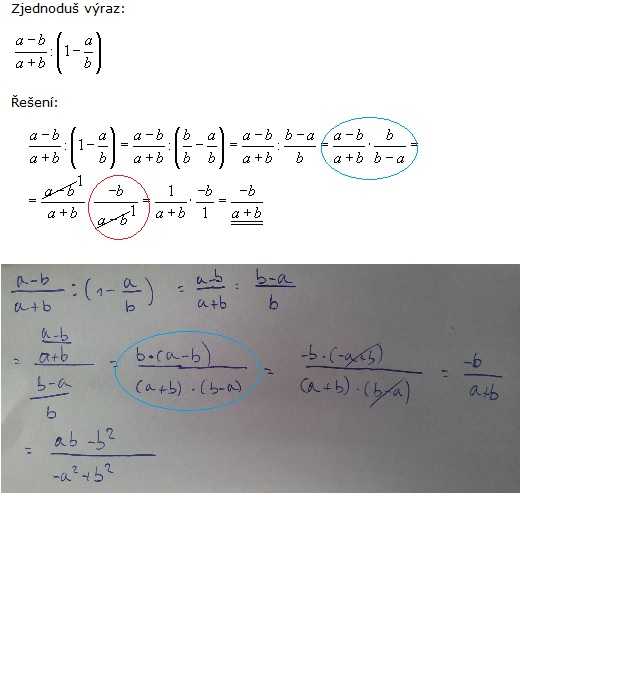 Zjednoduš výraz:
(a − b)/(a + b) : (1 − a/b)
Řešení:
(a − b)/(a + b) : (1 − a/b) = (a − b)/(a + b) : (b/b − a/b) = (a − b)/(a + b) : (b − a)/b = (a − b)/(a + b) · b/(b − a) =
= (a − b)¹/(a + b) · −b/(a − b)¹ = 1/(a + b) · −b/1 = −b/(a + b)
(a−b)/(a+b) : (1 − a/b) = (a−b)/(a+b) : (b−a)/b
= ((a−b)/(a+b))/((b−a)/b) = b·(a−b)/((a+b)·(b−a)) = −b·(−a+b)/((a+b)·(b−a)) = −b/(a+b)
= (ab − b²)/(−a² + b²)